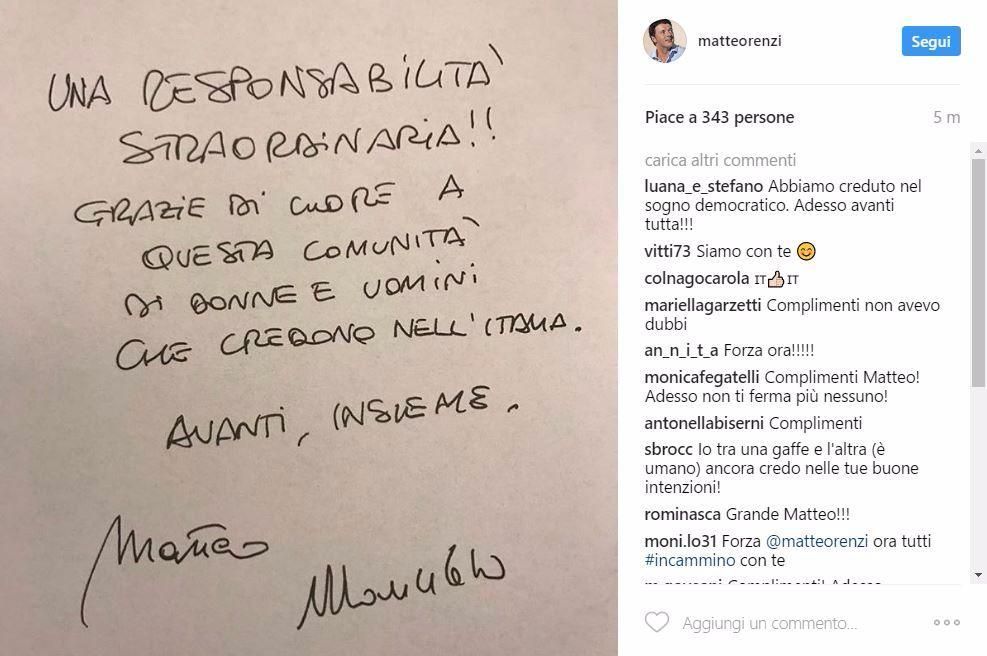 UNA RESPONSABILITÀ
STRAORDINARIA!!
GRAZIE DI CUORE A
QUESTA COMUNITÀ
DI DONNE E UOMINI
CHE CREDONO NELL'ITALIA.
AVANTI, INSIEME.
Matteo
matteorenzi
Segui
Piace a 343 persone
5 m
carica altri commenti
luana_e_stefano Abbiamo creduto nel
sogno democratico. Adesso avanti
tutta!!!
vitti73 Siamo con te 😊
colnagocarola IT👍🏻IT
mariellagarzetti Complimenti non avevo
dubbi
an_n_i_t_a Forza ora!!!!!
monicafegatelli Complimenti Matteo!
Adesso non ti ferma più nessuno!
antonellabiserni Complimenti
sbrocc Io tra una gaffe e l'altra (è
umano) ancora credo nelle tue buone
intenzioni!
rominasca Grande Matteo!!!
moni.lo31 Forza @matteorenzi ora tutti
#incammino con te
Complimenti! Adesso
Aggiungi un commento...